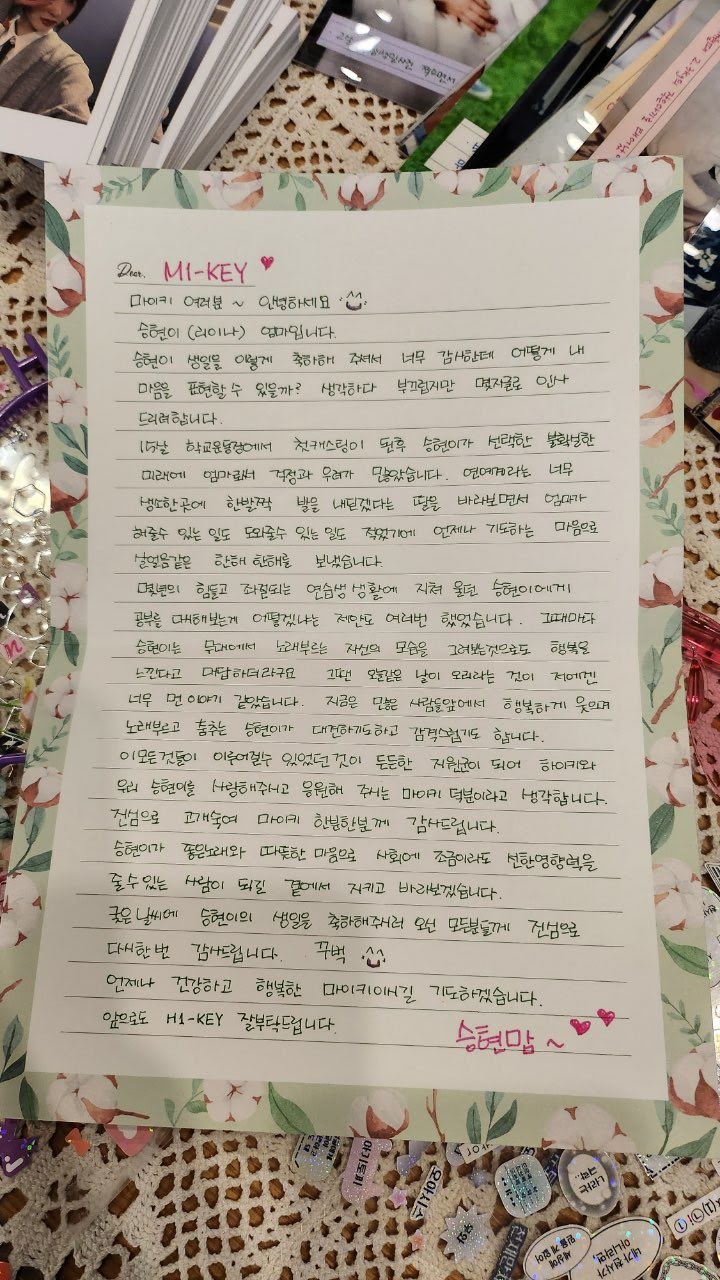 Dear. M1-KEY
마이키 여러분 ~ 안녕하세요 ^^
승현이 (리이나) 엄마입니다.
승현이 생일을 이렇게 축하해 주셔서 너무 감사한데 어떻게 내
마음을 표현할 수 있을까? 생각하다 부끄럽지만 몇자글로 인사
드리려합니다.
15살 학교운동장에서 첫캐스팅이 된후 승현이가 선택한 불확실한
미래에 엄마로써 걱정과 우려가 많았습니다. 연예계라는 너무
생소한곳에 한발짝 발을 내딛겠다는 딸을 바라보면서 엄마가
해줄수 있는일도 도와줄수 있는일도 적었기에 언제나 기도하는 마음으로
살얼음같은 한해 한해를 보냈습니다.
몇년의 힘들고 좌절되는 연습생 생활에 지쳐 울던 승현이에게
공부를 다시해보는게 어떻겠냐는 제안도 여러번 했었습니다. 그때마다
승현이는 무대에서 노래부르는 자신의 모습을 그려보는것으로도 행복을
느낀다고 대답하더라구요 그땐 오늘같은 날이 오리라는 것이 저에겐
너무 먼 이야기 같았습니다. 지금은 많은 사람들앞에서 행복하게 웃으며
노래부르고 춤추는 승현이가 대견하기도하고 감격스럽기도 합니다.
이모든것들이 이루어질수 있었던것이 든든한 지원군이 되어 하이키와
우리 승현이를 사랑해주시고 응원해 주시는 마이키 덕분이라고 생각합니다.
진심으로 고개숙여 마이키 한분한분께 감사드립니다.
승현이가 좋은노래와 따뜻한 마음으로 사회에 조금이라도 선한영향력을
줄수있는 사람이 되길 곁에서 지키고 바라보겠습니다.
궂은날씨에 승현이의 생일을 축하해주러 오신 모든분들께 진심으로
다시한번 감사드립니다. 꾸벅 ^^
언제나 건강하고 행복한 마이키이시길 기도하겠습니다.
앞으로도 H1-KEY 잘부탁드립니다.
승현맘~